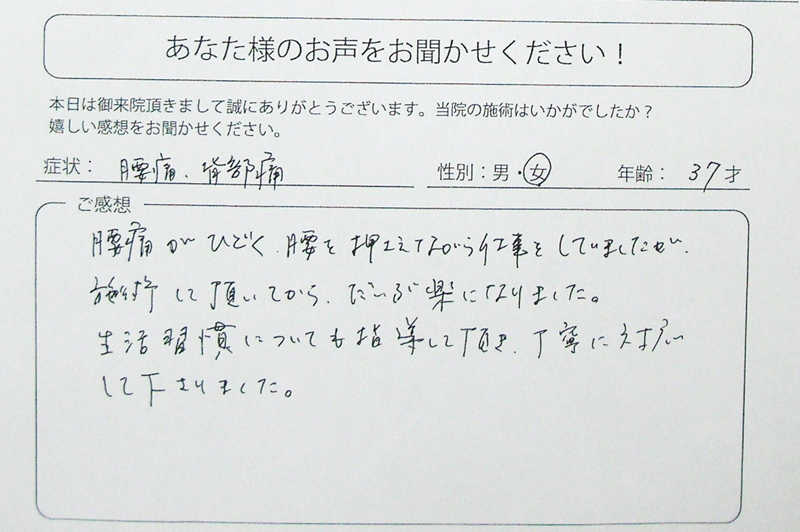 あなた様のお声をお聞かせください！
本日は御来院頂きまして誠にありがとうございます。当院の施術はいかがでしたか？
嬉しい感想をお聞かせください。
症状： 腰痛、背部痛 性別：男・女 年齢： 37才
ご感想
腰痛がひどく、腰を押えてながら仕事をしていましたが、
施術して頂いてから、だいぶ楽になりました。
生活習慣についても指導して頂き、丁寧に対応
して下さりました。